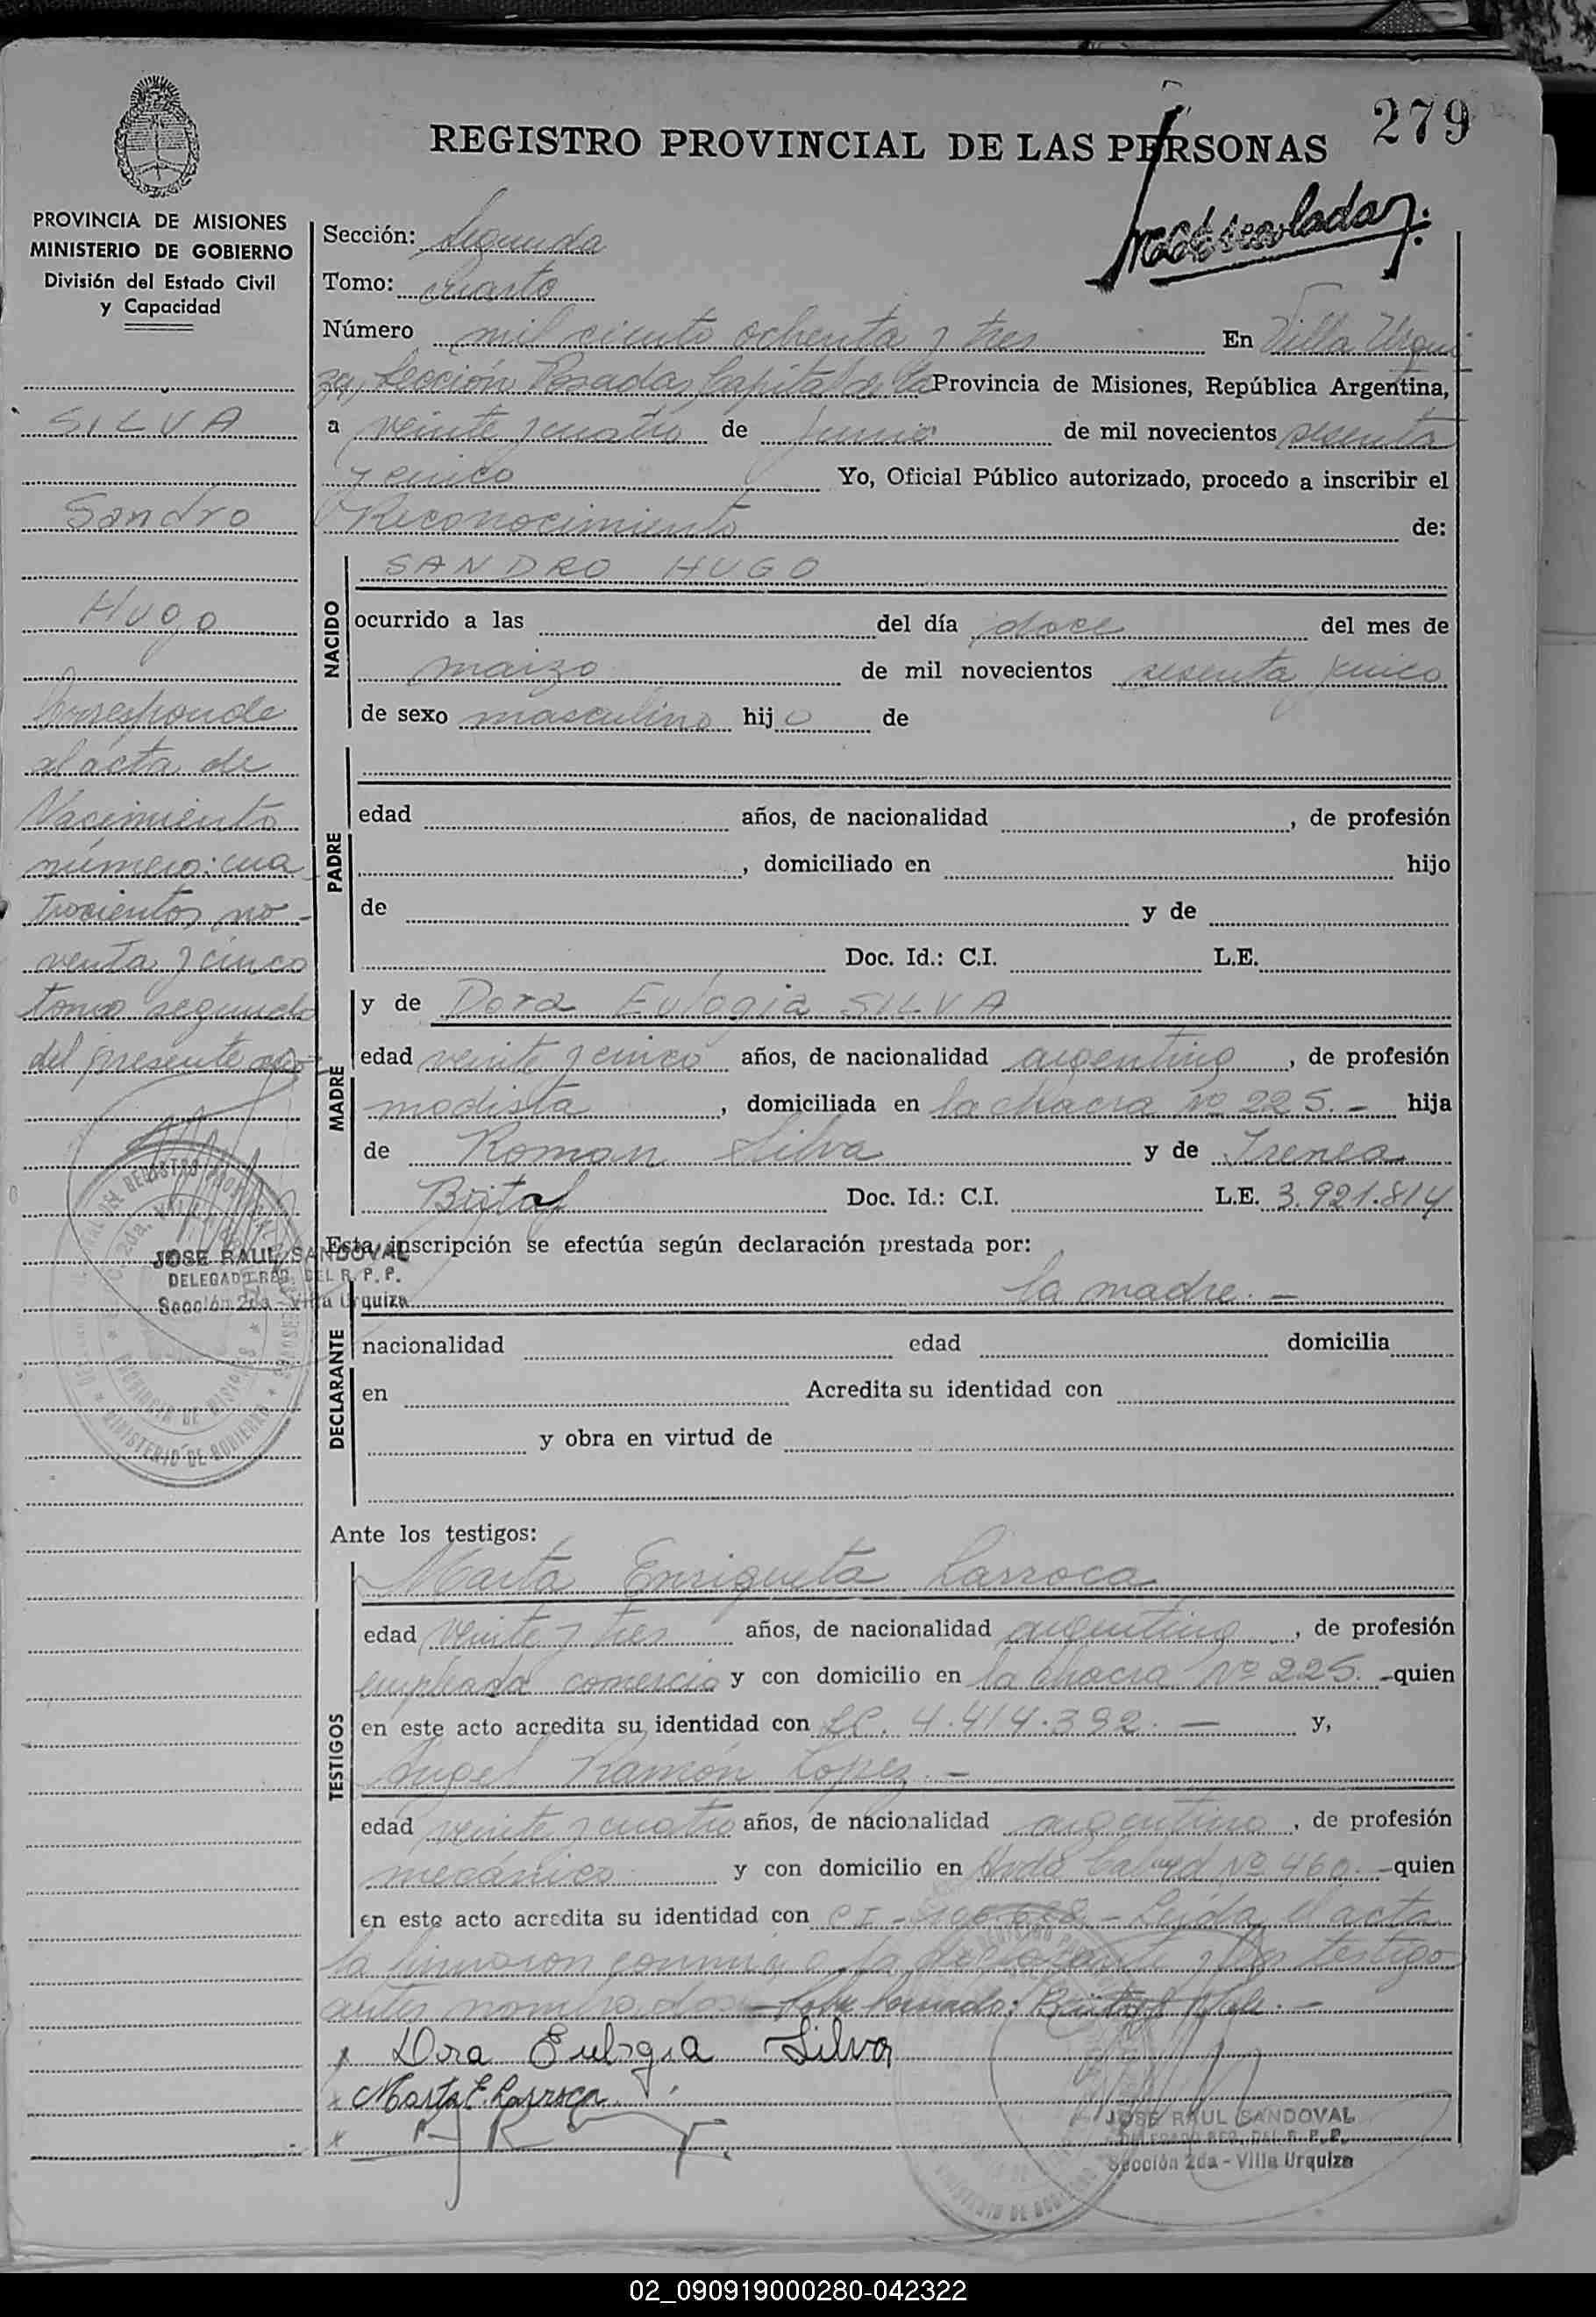 279
REGISTRO PROVINCIAL DE LAS PERSONAS
PROVINCIA DE MISIONES
MINISTERIO DE GOBIERNO
División del Estado Civil
y Capacidad
SILVA
Sandro
Hugo
Corresponde
al acta de
Nacimiento
número: cua
trocientos no-
venta y cinco
tomo segundo
del presente año
JOSE RAUL SANDOVAL
DELEGADO REG. DEL R. P. P.
Sección 2da - Villa Urquiza
Sección: Segunda
Tomo: Cuarto
Número mil ciento ochenta y tres En Villa Urqui
za, Sección Posadas, Capital de la Provincia de Misiones, República Argentina,
a veinte y cuatro de Junio de mil novecientos sesenta
y cinco Yo, Oficial Público autorizado, procedo a inscribir el
Reconocimiento de:
NACIDO
SANDRO HUGO
ocurrido a las del día doce del mes de
marzo de mil novecientos sesenta y cinco
de sexo masculino hijo de
PADRE
edad años, de nacionalidad , de profesión
, domiciliado en hijo
de y de
Doc. Id.: C.I. L.E.
MADRE
y de Dora Eulogia SILVA
edad veinte y cinco años, de nacionalidad argentina, de profesión
modista, domiciliada en la chacra Nº 225.- hija
de Roman Silva y de Irenea
Doc. Id.: C.I. L.E. 3.921.814
Esta inscripción se efectúa según declaración prestada por:
la madre.-
DECLARANTE
nacionalidad edad domicilia
en Acredita su identidad con
y obra en virtud de
Ante los testigos:
TESTIGOS
Marta Enriqueta Larroca
edad veinte y tres años, de nacionalidad argentina, de profesión
empleada comercio y con domicilio en la chacra Nº 225. -quien
en este acto acredita su identidad con LC. 4.414.392.- y,
Angel Ramón Lopez.-
edad veinte y cuatro años, de nacionalidad argentino, de profesión
mecánico y con domicilio en Nº 460. -quien
en este acto acredita su identidad con C.I. - Leída el acta
la firmaron conmigo la declarante y los testigo
antes nombrados
Dora Eulogia Silva
x Marta E. Larroca
x
JOSE RAUL SANDOVAL
DELEGADO REG. DEL R. P. P.
Sección 2da - Villa Urquiza
02_090919000280-042322